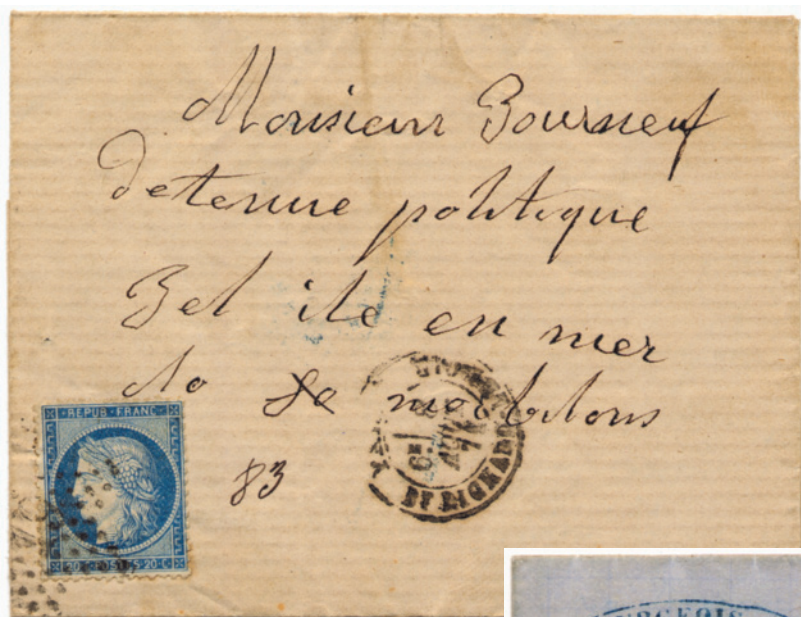 Monsieur Bourneuf
detenue politique
Bel ile en mer
do morbihons
83
REPUB·FRANC·
20·C·POSTES·20·C·